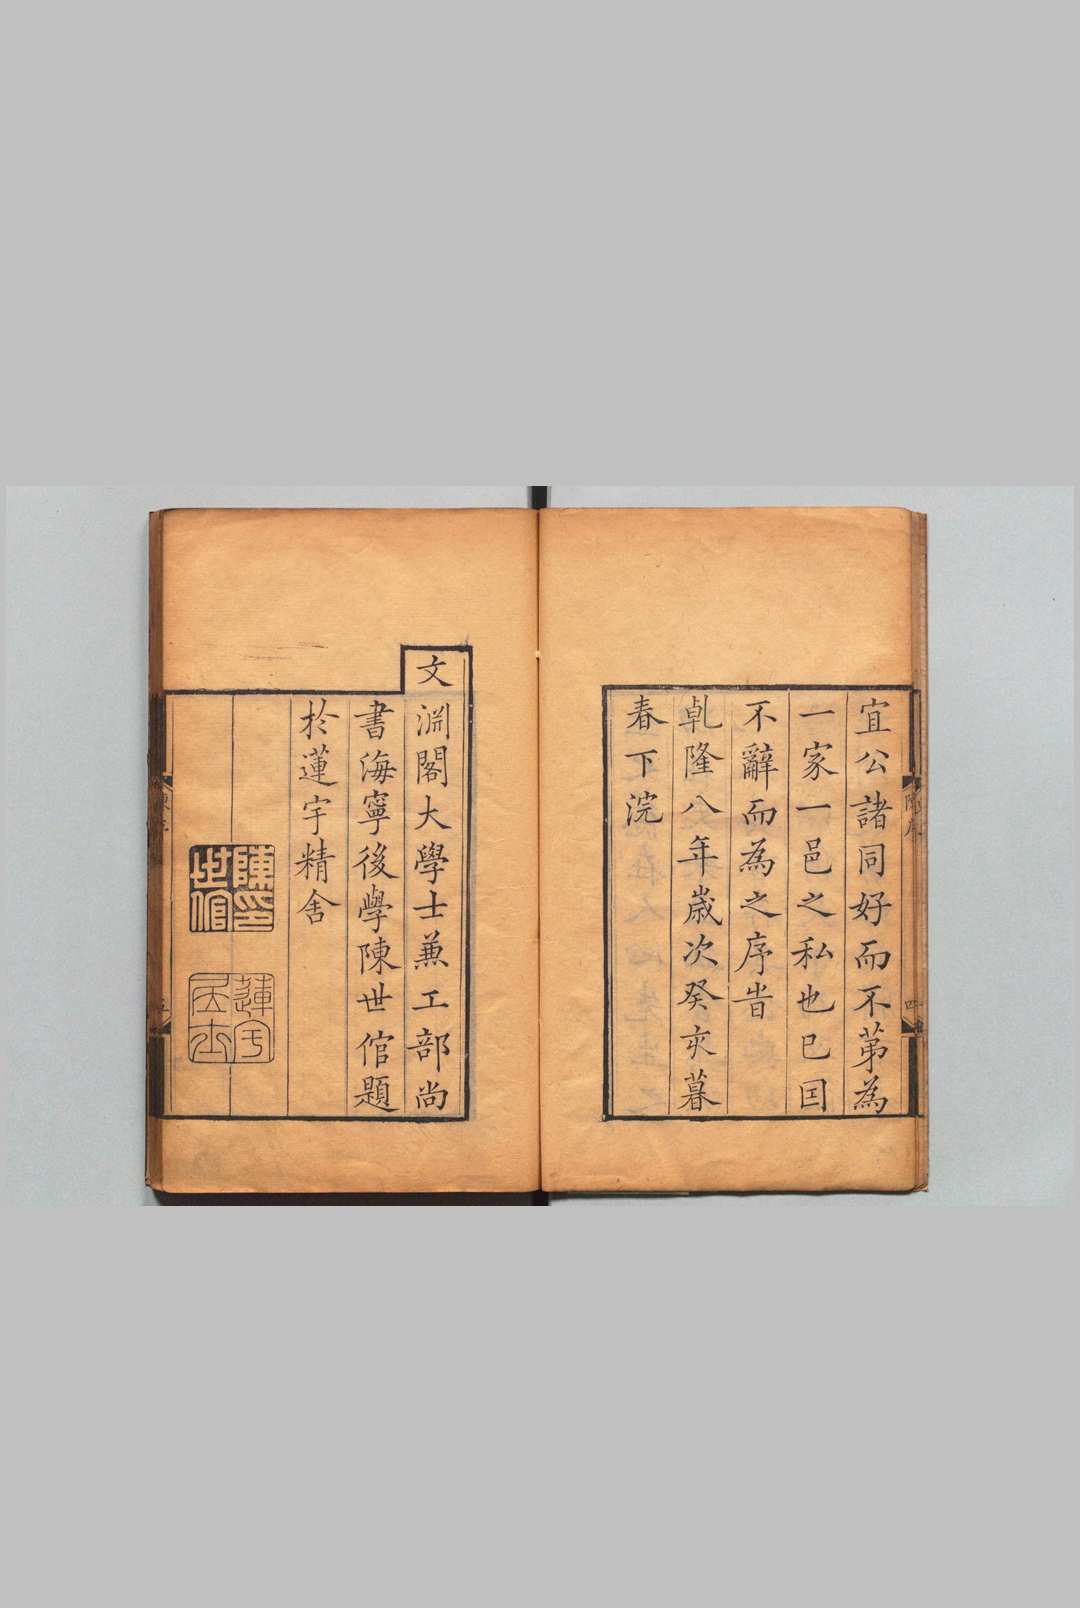 宜公諸同好而不苐為
一家一邑之私也已囯
不辭而為之序旹
乹隆八年歲次癸亥暮
春下浣
文淵閣大學士兼工部尚
書海寧後學陳世倌題
於蓮宇精舍
陳印世倌
蓮宇居士
陳序
四